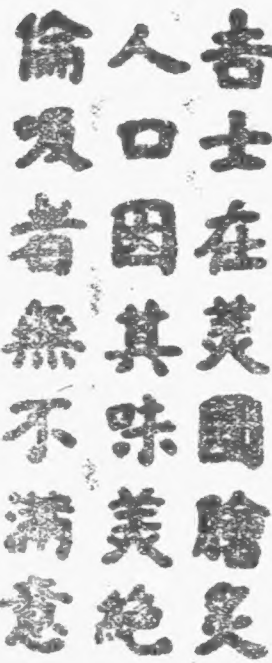 吉士在美國膾炙
人口因其味美絶
倫吸者無不滿意